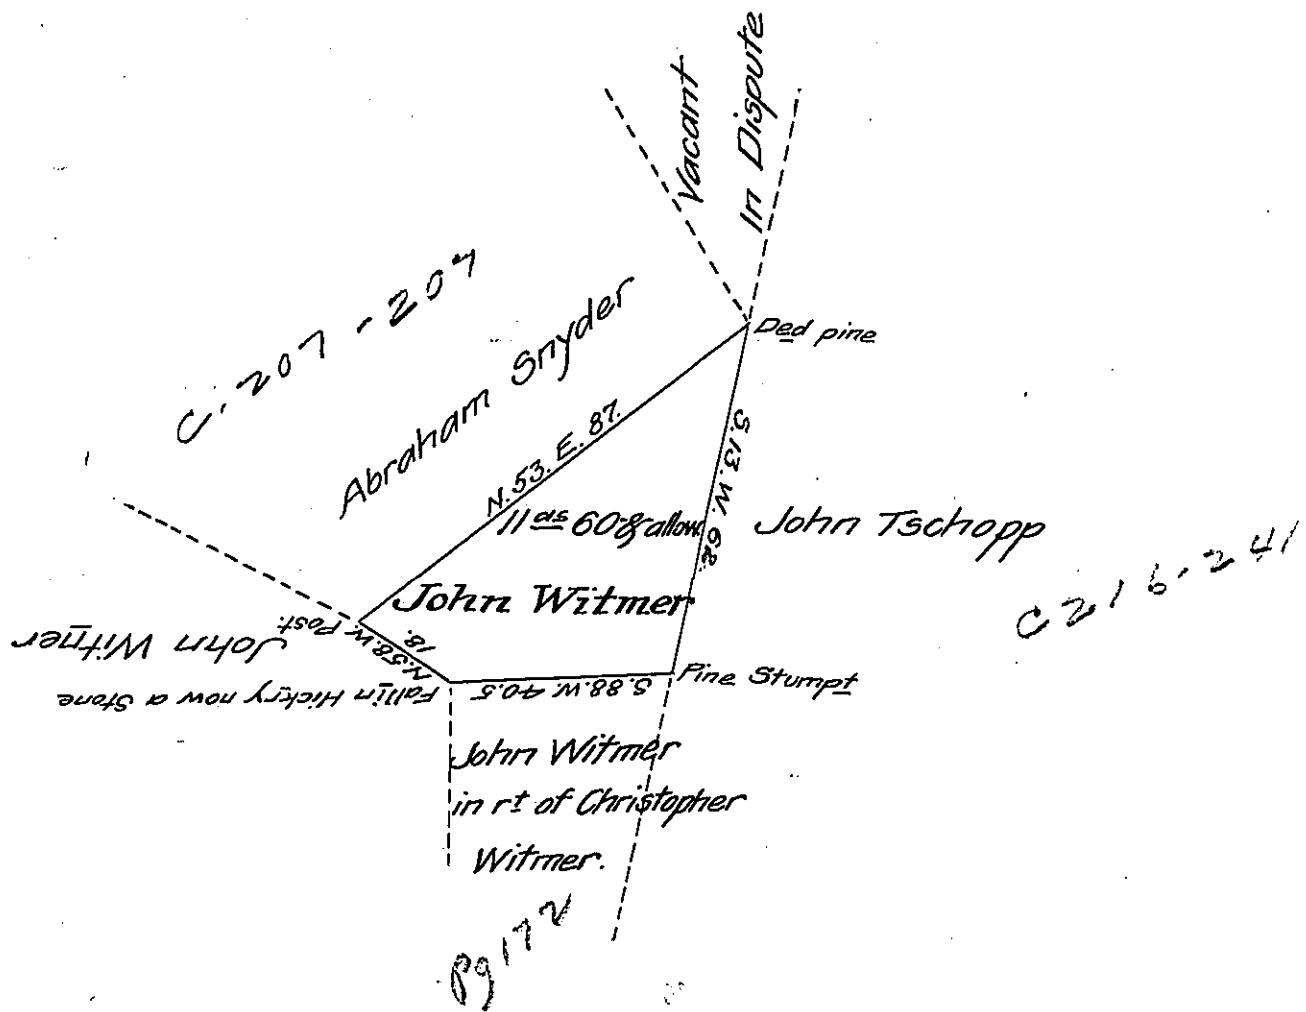 Vacant
In Dispute
C. 207 - 207
Abraham Snyder
Ded pine
N. 53. E. 87.
S. 13. W. 62.
11 as 60 & allow.
John Tschopp
C 216-241
John Witmer
Post.
John Witmer
N. 58. W.
18.
Fallin Hickry now a Stone
S. 88. W. 40.5
Pine Stumpt
John Witmer
in rt of Christopher
Witmer.
Pg 172